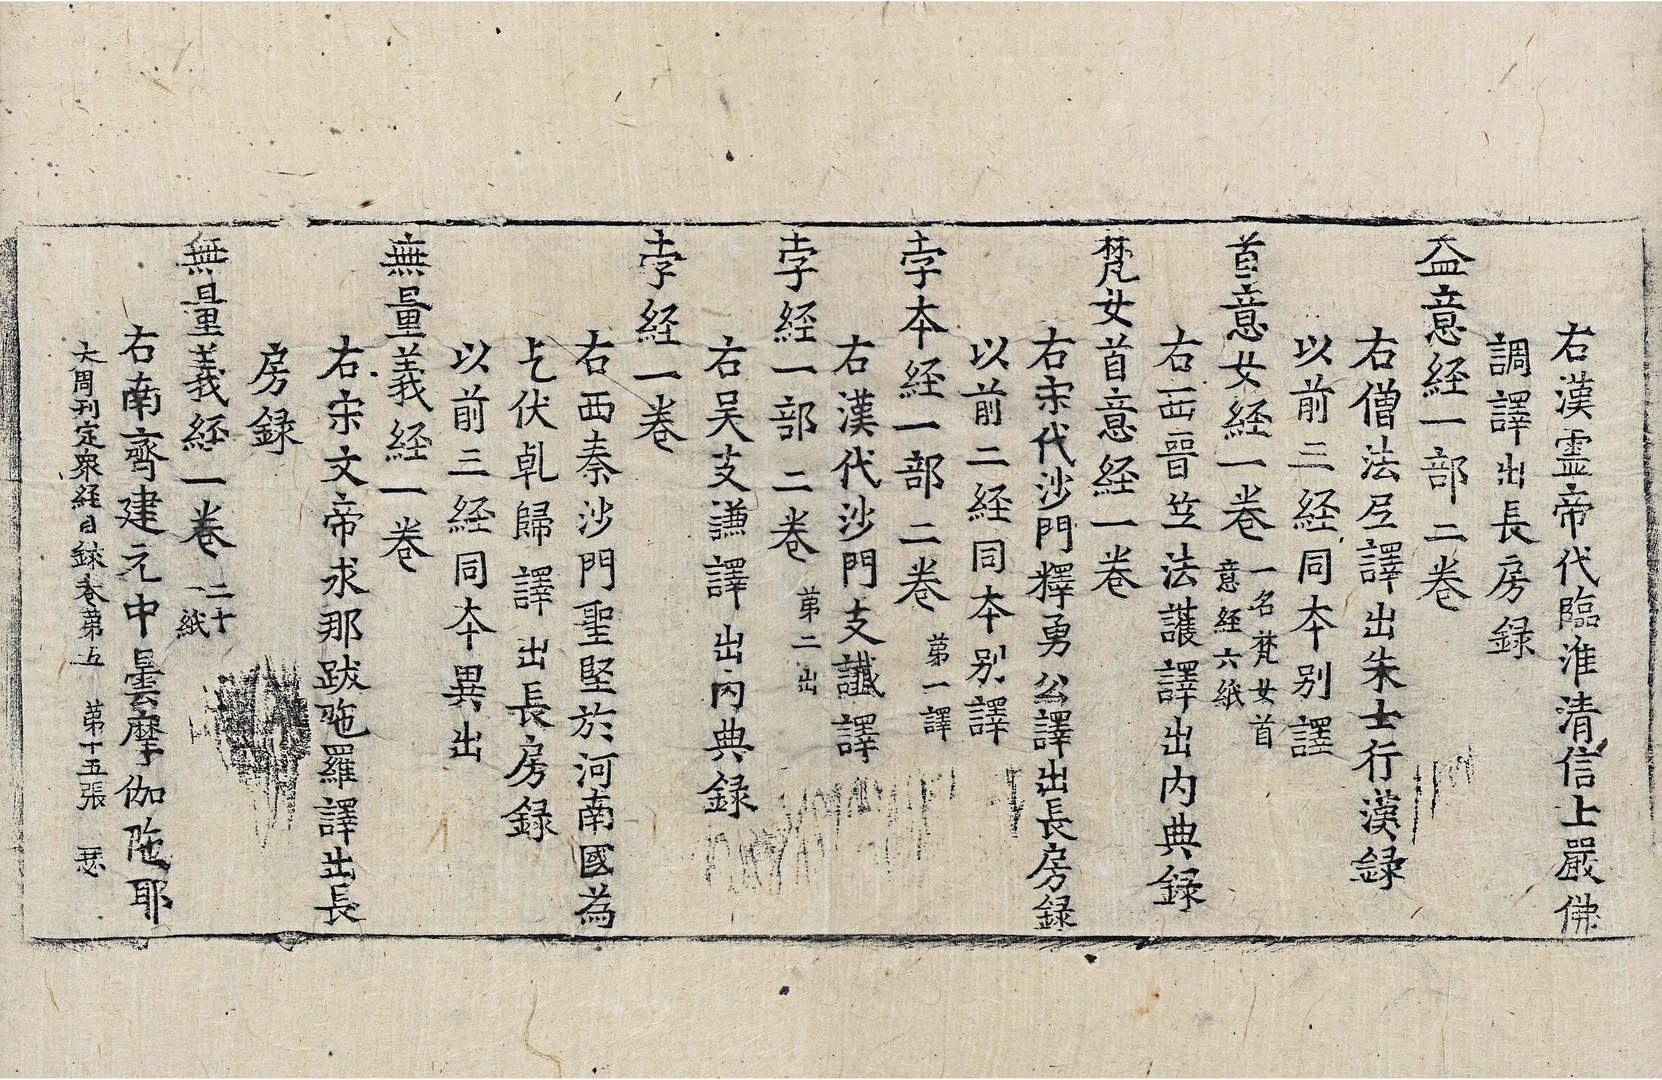 右漢靈帝代臨淮清信士嚴佛
調譯出長房録
益意経一部二卷
右僧法𡰱譯出朱士行漢録
以前三経同本別譯
首意女経一卷 一名梵女首意経六紙
右西晉笁法護譯出内典録
梵女首意経一卷
右宋代沙門釋勇公譯出長房録
以前二経同本別譯
孛本経一部二卷 第一譯
右漢代沙門支讖譯
孛経一部二卷 第二出
右吴支謙譯出内典録
孛経一卷
右西秦沙門聖堅於河南國為
乞伏乹歸譯出長房録
以前三経同本異出
無量義経一卷
右宋文帝求那跋陁羅譯出長
房録
無量義経一卷 二十一紙
右南齊建元中曇摩伽陁耶
大周刊定衆経目録卷第五 第十五張 瑟